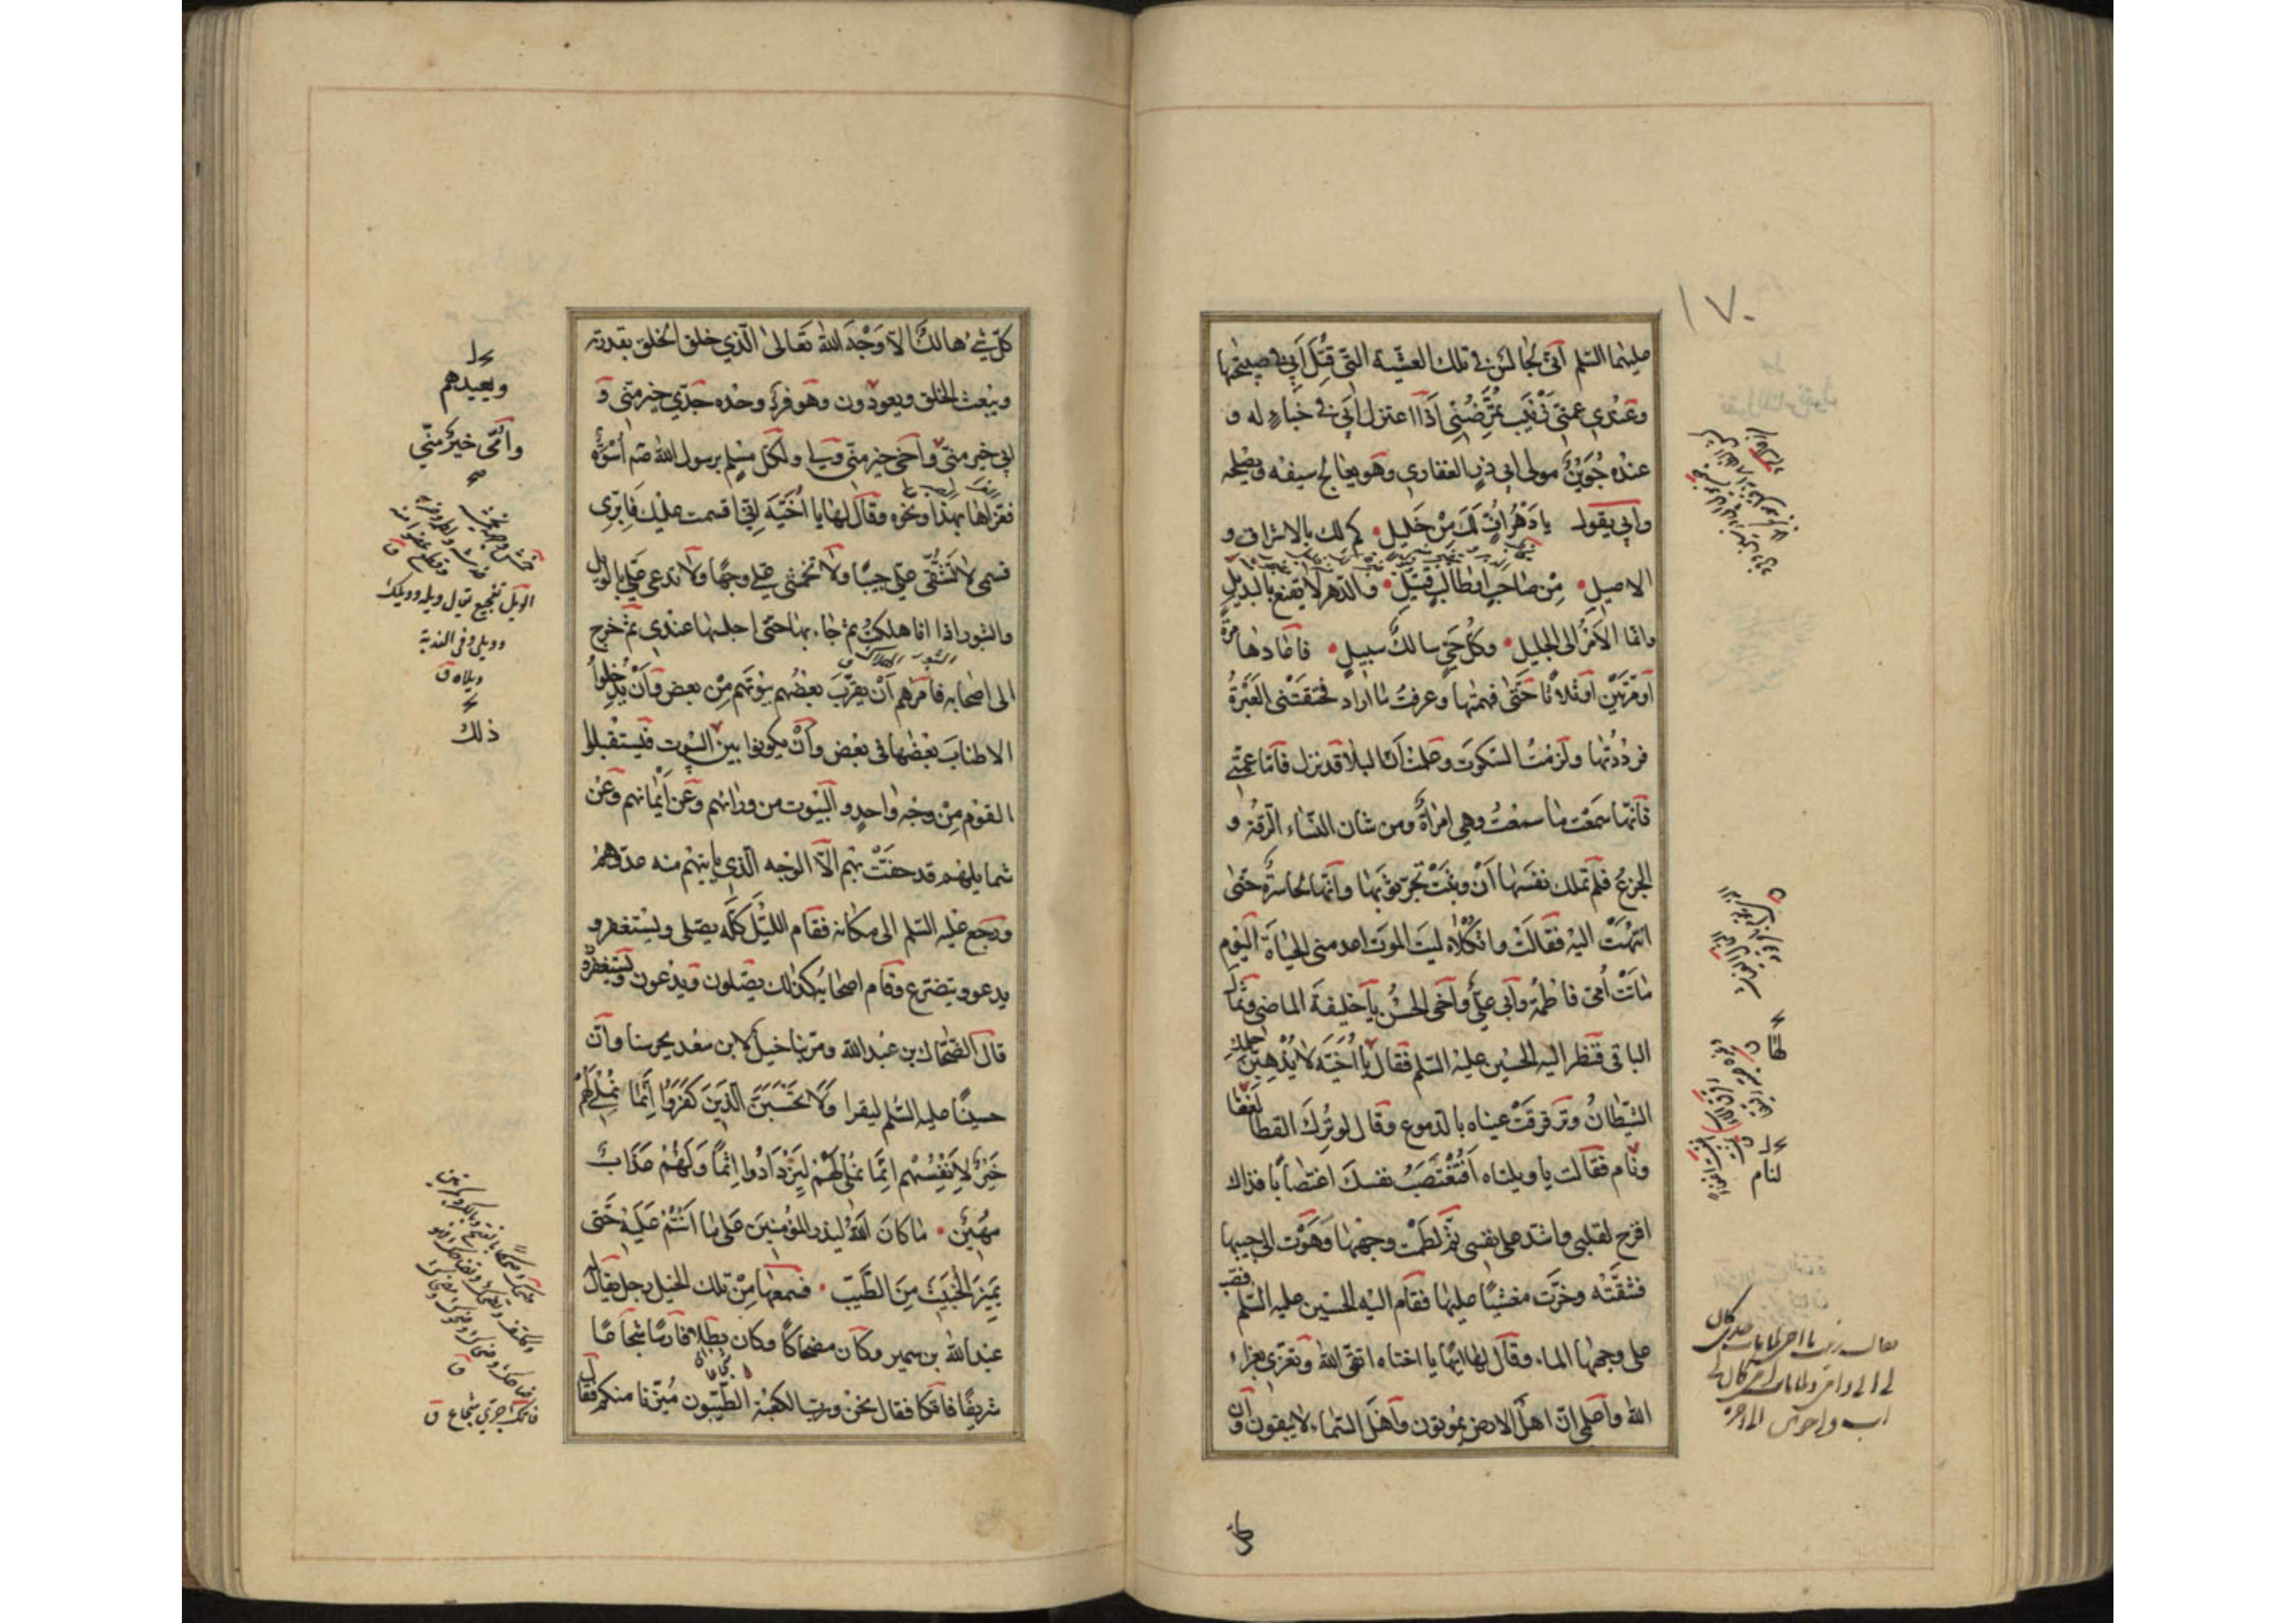 ١٧٠
عليهما السّلم انّي لجالس في تلك العشيّة التي قُتِلَ اَبي في صبيحتها
وعندي عمتي زَيْنَب تُمَرِّضُني اذ اعتزل اَبي في خباءٍ له و
عنده جُوَيْنٌ مولى ابي ذرٍّ الغفاري وهو يعالج سيفه ويصلحه
وابي يقول يا دَهْرُ اُفٍّ لَكَ مِنْ خَليلِ كم لك بالاشراق و
الاصيلِ مِنْ صاحبٍ اوطالبٍ قتيلِ والدّهر لا يقنع بالبديلِ
وانّما الاَمْرُ الى الجليلِ وكلّ حَيٍّ سالكٌ سبيلِ فاعادها مرّةً
اَو مَرَّتَيْنِ اَو ثلاثًا حَتّى فهمتها وعرفتُ ما اراد فخنقَتْنى العَبْرَةُ
فرددْتها ولزمْتُ السّكوتَ وعلمتُ اَنّ البلاء قد نزل فامّا عمّتي
فانّها سَمِعَتْ ما سمعْتُ وهي امراَةٌ ومن شان النّساء الرّقة و
الجزع فلم تملك نفسَها اَنْ وثبَتْ تجرّ ثوبَها وانّها لحاسرةٌ حتّى
انتهَتْ اليه فقالَتْ واثكلاه ليتَ الموتَ اعدمنى الحياةَ اليوم
ماتَتْ اُمّى فاطمةُ واَبى عليٌّ واَخى الحسنُ يا خليفةَ الماضى وثمالَ
الباقى فنظر اليه الحسين عليه السّلم فقال يا اُخَيَّه لا يُذْهِبَنَّ حلمك
الشّيطانُ وترقرقَتْ عيناه بالدّموع وقال لو تُرِكَ القطا لغفا
ونام فقالت يا ويلتاه اَفَتُغْتَصَبُ نفسكَ اغتصابًا فذاك
اقرح لقلبي واشد على نفسي ثمّ لطَمَت وجهَها وهَوَت الى جيبها
فشقّته وخرّت مغشيًّا عليها فقام اليه الحسين عليه السّلم فصبّ
على وجهها الماء وقال لها ايها يا اختاه اتقى الله وتعزّي بعزاء
الله واعلمى انّ اهل الارض يموتون واهل السّماء لا يبقون وانّ
كلّ
لها
لنام
كلّ شيءٍ هالك الّا وَجْهَ الله تَعالى الّذي خلق الخلق بقدرته
ويبْعث الخلق ويعودون وهو فردٌ وحده جدّي خير منّى و
ابي خير منّى واَخى خير منّى ولي ولكلّ مسلم برسول الله صم اُسْوَةٌ
فعزّاها بهذا ونحوه وقال لها يا اُخَيَّه انّى اقسمت عليك فاَبِرّى
قسمى لا تشُقّى علىّ جيبًا ولا تخمشى علىّ وجهًا ولا تدعى علىّ بالويل
والثبور اذا انا هلكتُ ثم جاء بها حتى اجلسها عندى ثمّ خرج
الى اصحابه فامرهم اَنْ يقرّبَ بعضُهم بيُوتَهم مِنْ بعض واَنْ يُدخلوا
الاطنابَ بعْضها فى بعْض واَنْ يكونوا بين البيوت فيستقبلوا
القوْم مِنْ وجْه واحدٍ والبُيوت من ورائهم وعَن اَيْمانهم وعَن
شمايلهم قد حفّتْ بهم الّا الوَجه الّذي ياتيهم منه عدوّهم
ورجع عليه السّلم الى مكانه فقام اللّيْلَ كلّه يصلى ويسْتغفر و
يدعو ويتضرّع وقام اصحابُه كذلك يصلون ويدْعون ويستغفرون
قال الضّحّاك بن عبْدالله ومرّ بنا خيل لابن سعْد يحرسنا وانّ
حسينًا عليه السّلم ليقرا وَلا يَحْسَبَنَّ الَّذينَ كَفَرُوا اَنَّما نُمْلي لَهُمْ
خَيْرٌ لِاَنْفُسِهِم اِنَّما نُمْلي لَهُمْ لِيَزْدادُوا اِثْمًا وَلَهُمْ عَذابٌ
مُهينٌ ما كانَ اللهُ لِيذر المُؤمنينَ عَلى ما اَنْتُمْ عَلَيْه حَتّى
يَميزَ الْخَبيثَ مِنَ الطَّيِّبِ فسمعها مِنْ تلك الخيل رجل يقال له
عبدالله بن سمير وكان مضحاكًا وكان بطلا فارسًا شجاعًا
شريفًا فاتكا فقال نحْن وربّ الكعْبة الطّيّبون مُيِّزنا منكم فقال
ويعيدهم
وامّى خيرٌ منّي
الويل تفجيع يقال ويله وويلك
وويلي وفى الندبة
ويلاه ق
ذلك
الثبور الهلاك
فاتك جري شجاع ق